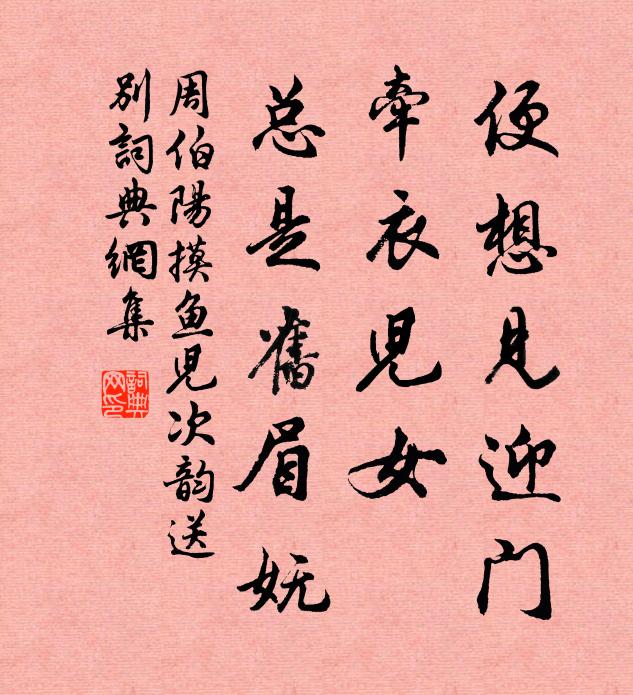 便想見迎门
牽衣兒女
总是舊眉妩
周伯陽摸鱼兒次韵送
别詞典網集
詞典网印